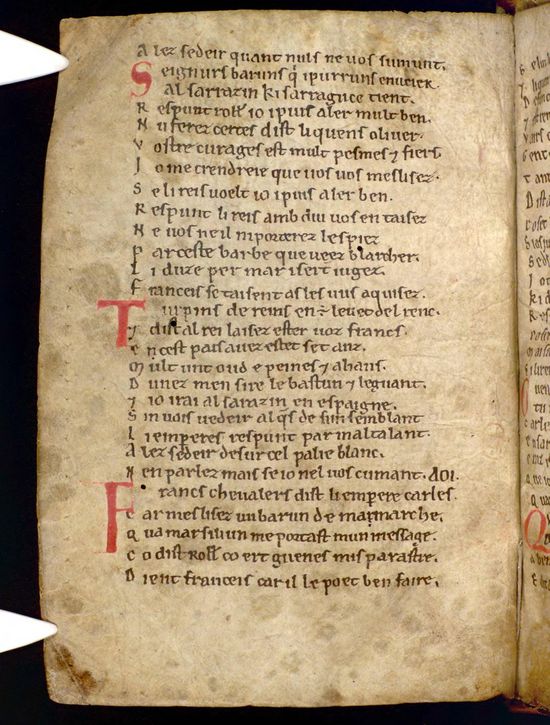 Alez sedeir quant nuls ne vos sumunt.
Seignurs baruns q i purruns enveier
Al sarrazin ki sarraguce tient.
Respunt roll io i puis aler mult ben.
Nu ferez certes dist li quens oliver.
Vostre curages est mult pesmes ⁊ fiers
Jo me crendreie que vos vos meslisez.
Se li reis voelt io i puis aler ben.
Respunt li reis ambdui vos en taisez
Ne vos ne il n i porterez les piez
Par ceste barbe que veez blancher.
Li duze per mar i sert iugez.
Franceis se taisent as les vus aquisez.
Turpins de reins en ē levet del renc.
⁊ dist al rei laisez ester voz francs.
En cest pais avez estet set anz.
Mult unt oud e peines ⁊ ahans.
Dunez men sire le bastun ⁊ le guant.
⁊ io irai al sarazin en espaigne.
Sin vois vedeir al q̃s de sun semblant
Li emperes respunt par maltalant.
Alez sedeir desur cel palie blanc.
Nen parlez mais se io nel vos cumant. AOI.
Francs chevalers dist li empere carles.
Car meslisez un barun de ma marche.
Qua marsiliun me portast mun message.
Co dist roll co ert guenes mis parastre.
Dient franceis car il le poet ben faire.